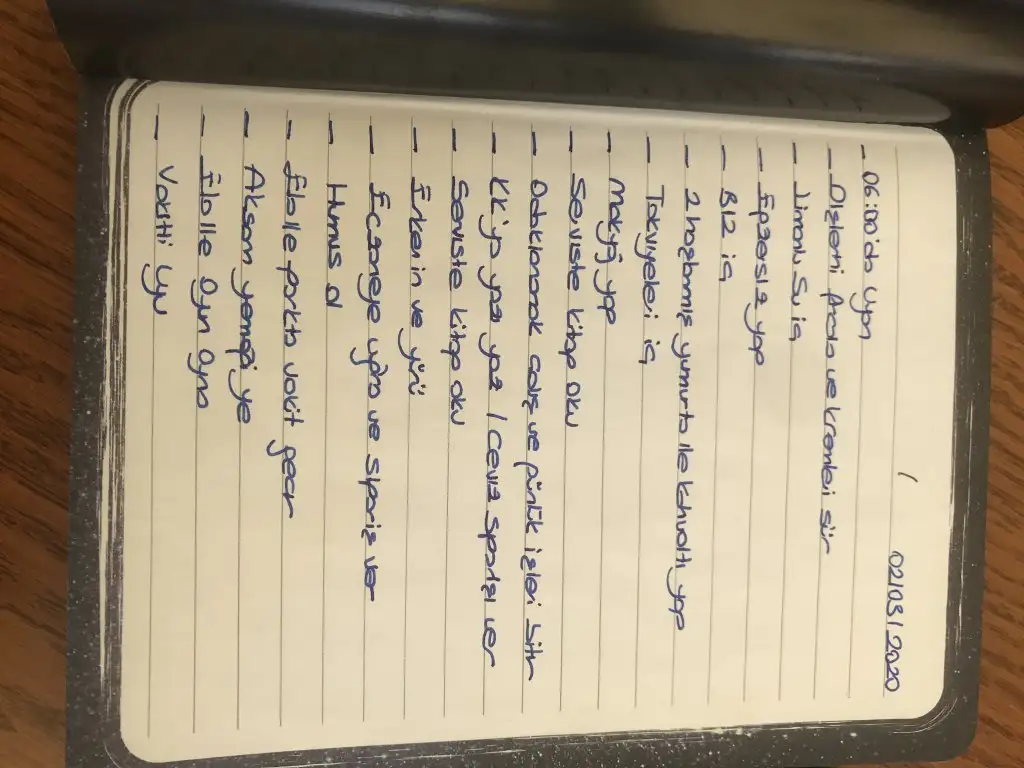 02/03/2020
- 06:00'da Uyan
- Dişlerini fırçala ve kremleri sür
- Limonlu Su iç
- Egzersiz yap
- B12 iç
- 2 haşlanmış yumurta ile kahvaltı yap
- Takviyeleri iç
- Makyaj yap
- Serviste kitap oku
- Odaklanarak çalış ve günlük işleri bitir
- KK'ya yaz / Ceviz Siparişi ver
- Serviste kitap oku
- Erken in ve yürü
- Eczaneye uğra ve sipariş ver
- Humus al
- ile parkta vakit geçir
- Akşam yemeği ye
- ile Oyun Oyna
- Vakitli Uyu